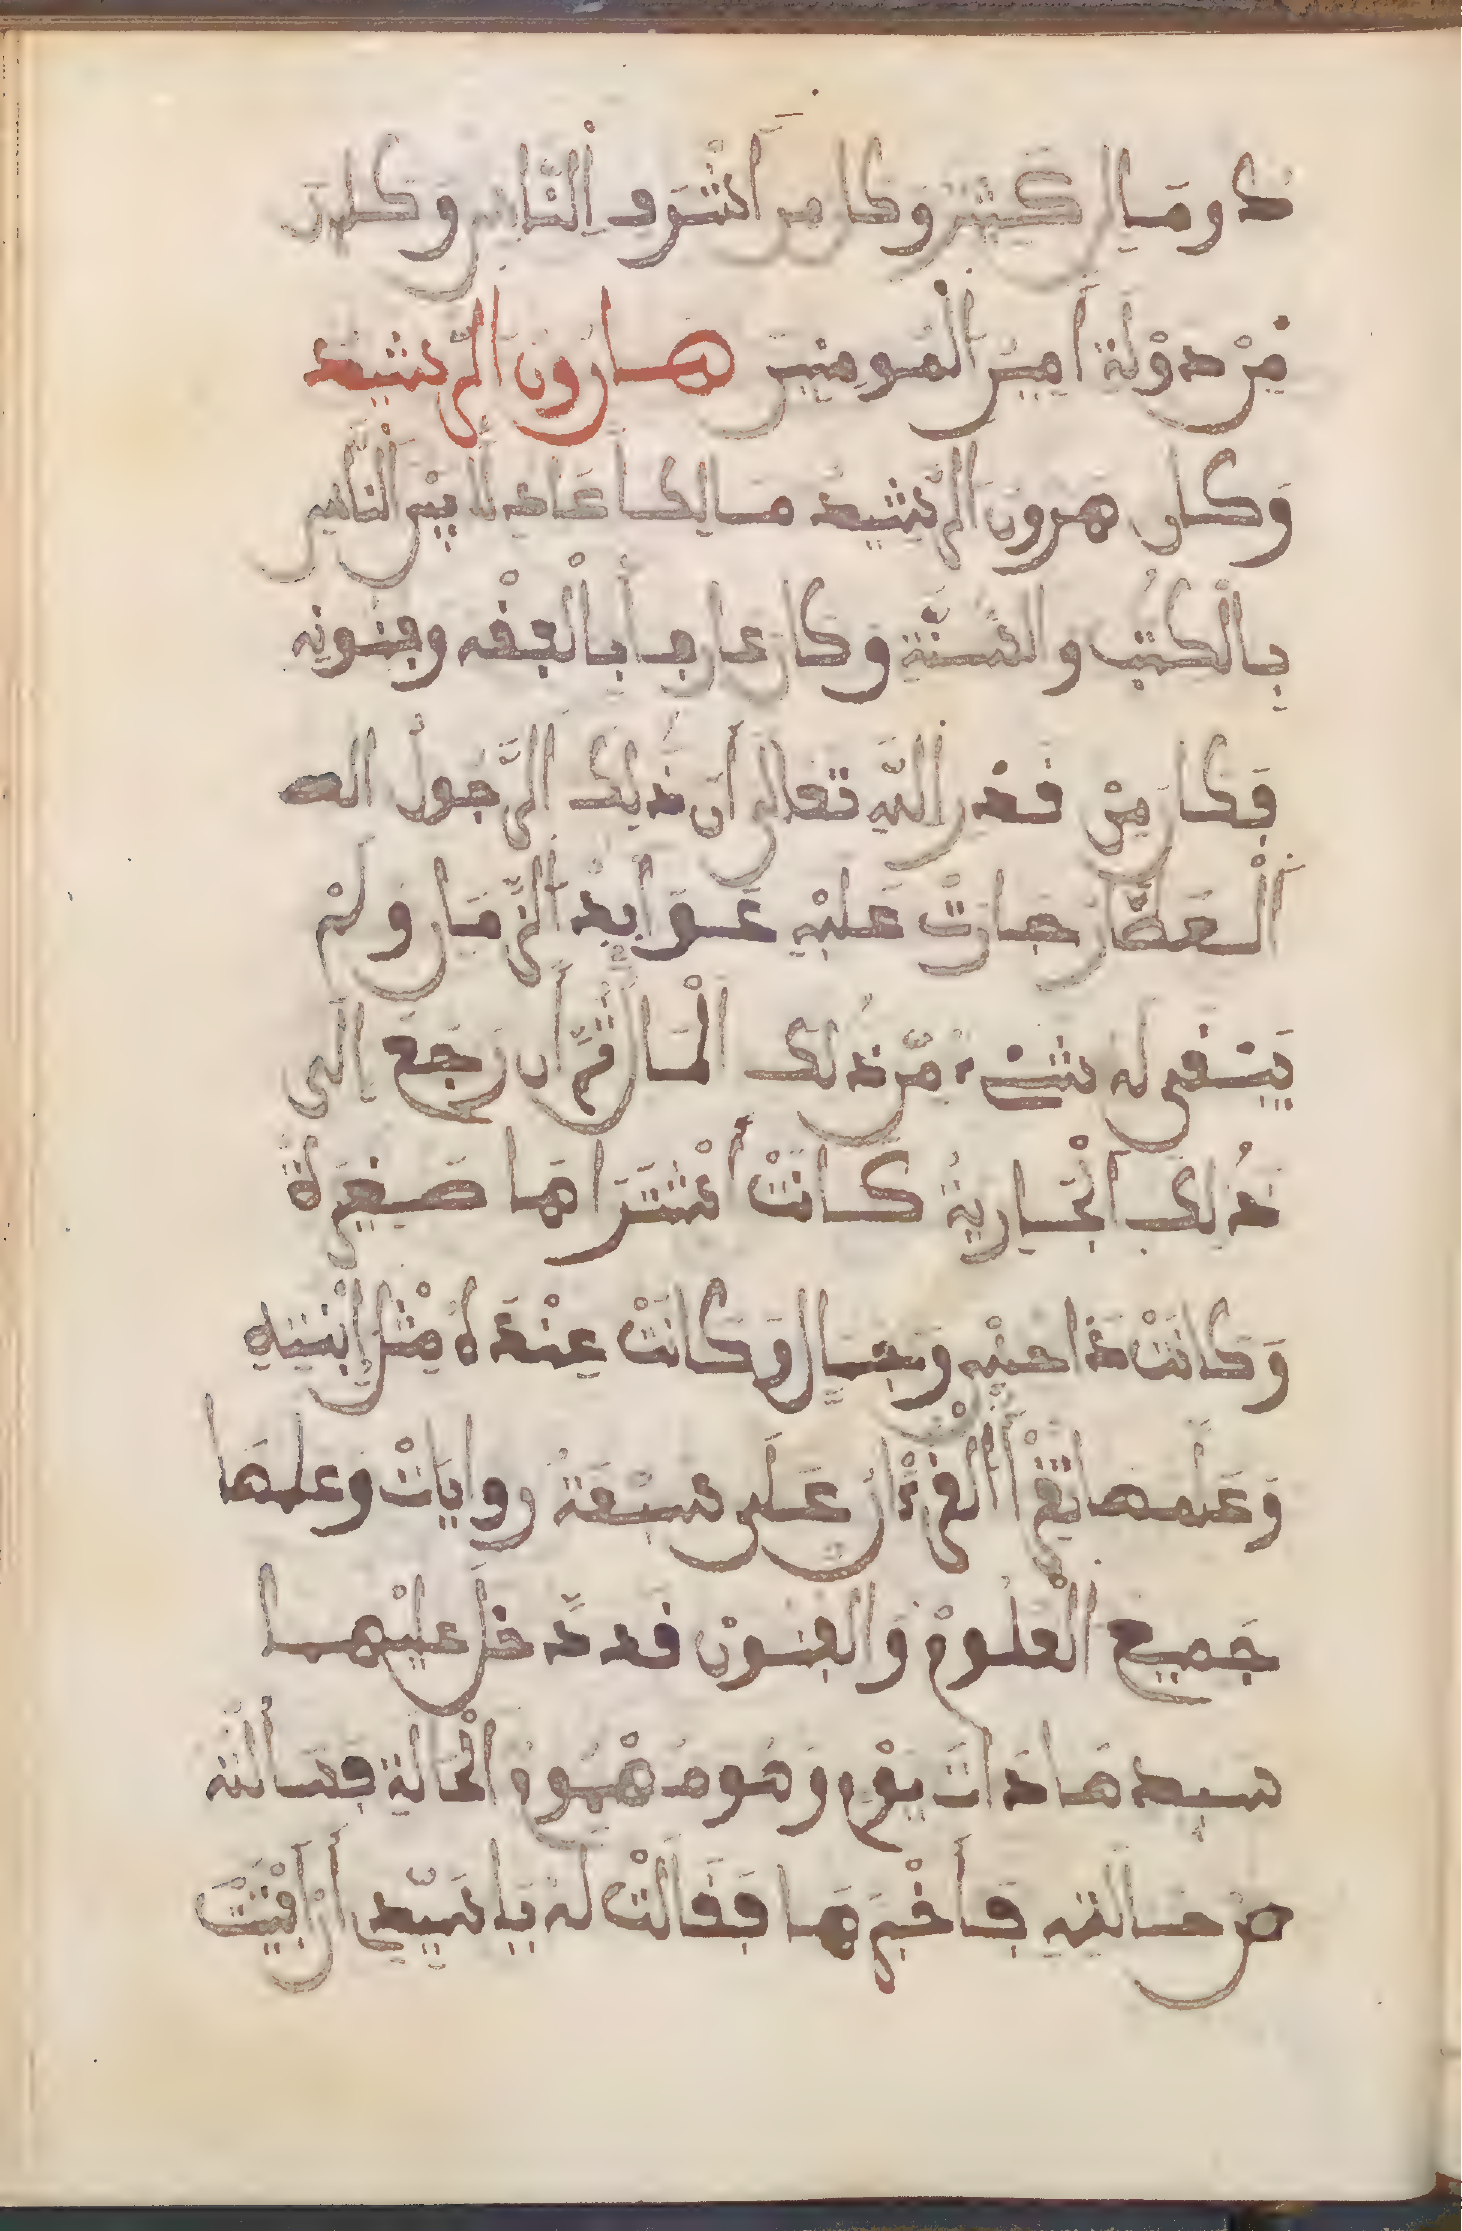 ذو مال كثير وكان من أشرف الناس وكان
مِنْ دَوْلة أمير المومنين هارون الرشيد
وَكان هرون الرشيد مالكا عادلا بين الناس
بِالْكتب والسنة وكان عارفا بالفقه وفنونه
فكان مِنْ قدر اللهِ تعالى أن ذلك الرَّجول الـ
الْعَطّار جارت عليْهِ عَوَايد الزّمان ولمْ
يَبقى له شيء مّن ذلك المال ثمّ أن رجَع إلى
ذلك الجارية كانَتْ أشترَاها صغيرة
وَكانَتْ ذا حسْن وَجمال وَكانتْ عِنْدَهُ مِثْل إبْنته
وَعَلّمها تقْرأ القرْءان عَلى سبْعَة روايات وعلمها
جَميع الْعلُومْ وَالفنونْ قد دّخل عليْهما
سيدها ذات يَوْم وَهُو مهْمُوم الحالة فسألته
عن حالتهِ فأخْبرهَا فقالتْ لهُ يا سَيّدي أرَافيْتَ